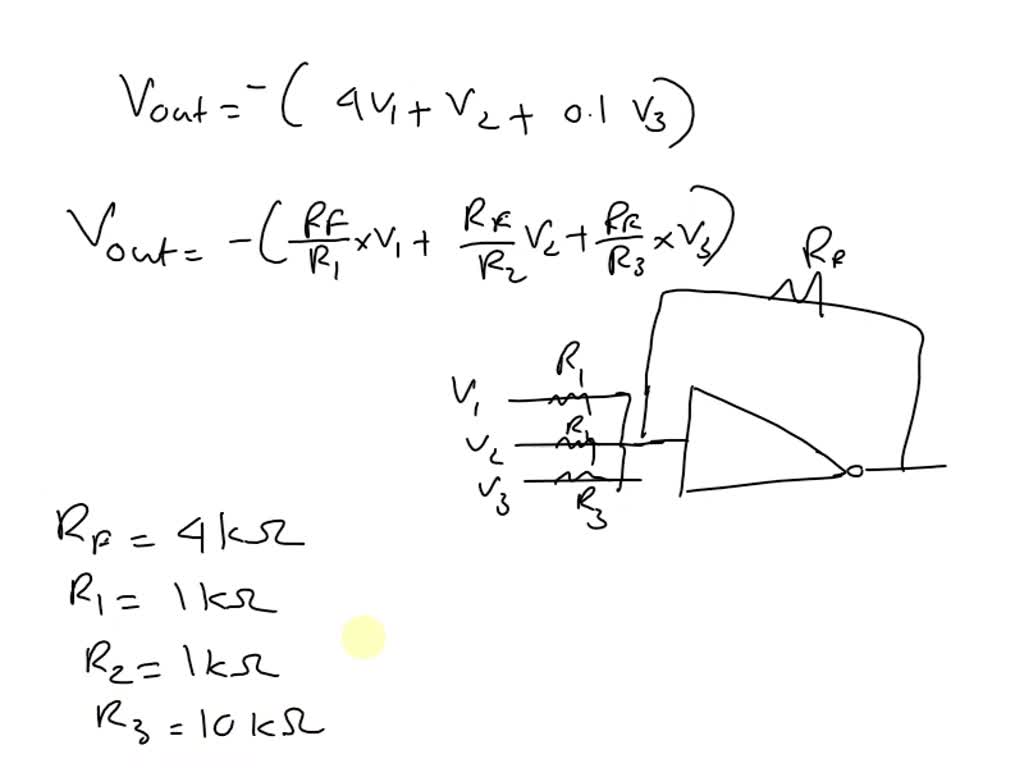 Vout = -( 4V1 + V2 + 0.1 V3)
Vout = -( RF/R1 × V1 + RF/R2 V2 + RF/R3 × V3)
RF
R1
V1
R1
V2
V3
R3
RF = 4kΩ
R1 = 1kΩ
R2 = 1kΩ
R3 = 10kΩ